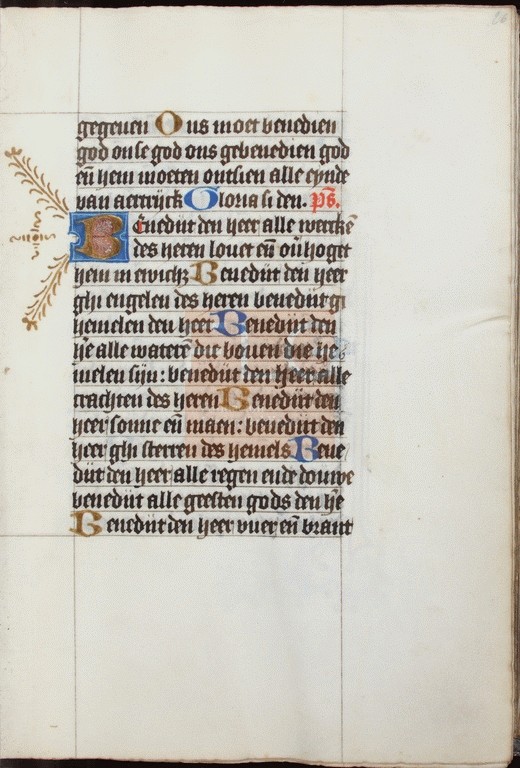 gegeuen Ons moet benedien
god onse god ons gebenedien god
en̄ hem moeten ontsien alle eynde
van aertrijck Gloria si den. ps̄.
Benedijt den heer alle wercke̅
des heren louet en̄ ouhoget
hem in ewich Benedijt den heer
ghi engelen des heren benedijt gi
hemelen den heer Benedijt den
he̅ alle watere̅ die bouen die he
melen sijn: benedijt den heer alle
crachten des heren Benedijt den
heer sonne en̄ maen: benedijt den
heer ghi sterren des hemels Bene/
dijt den heer alle regen ende douwe
benedijt alle geesten gods den he̅
Benedijt den heer vuer en̄ brant